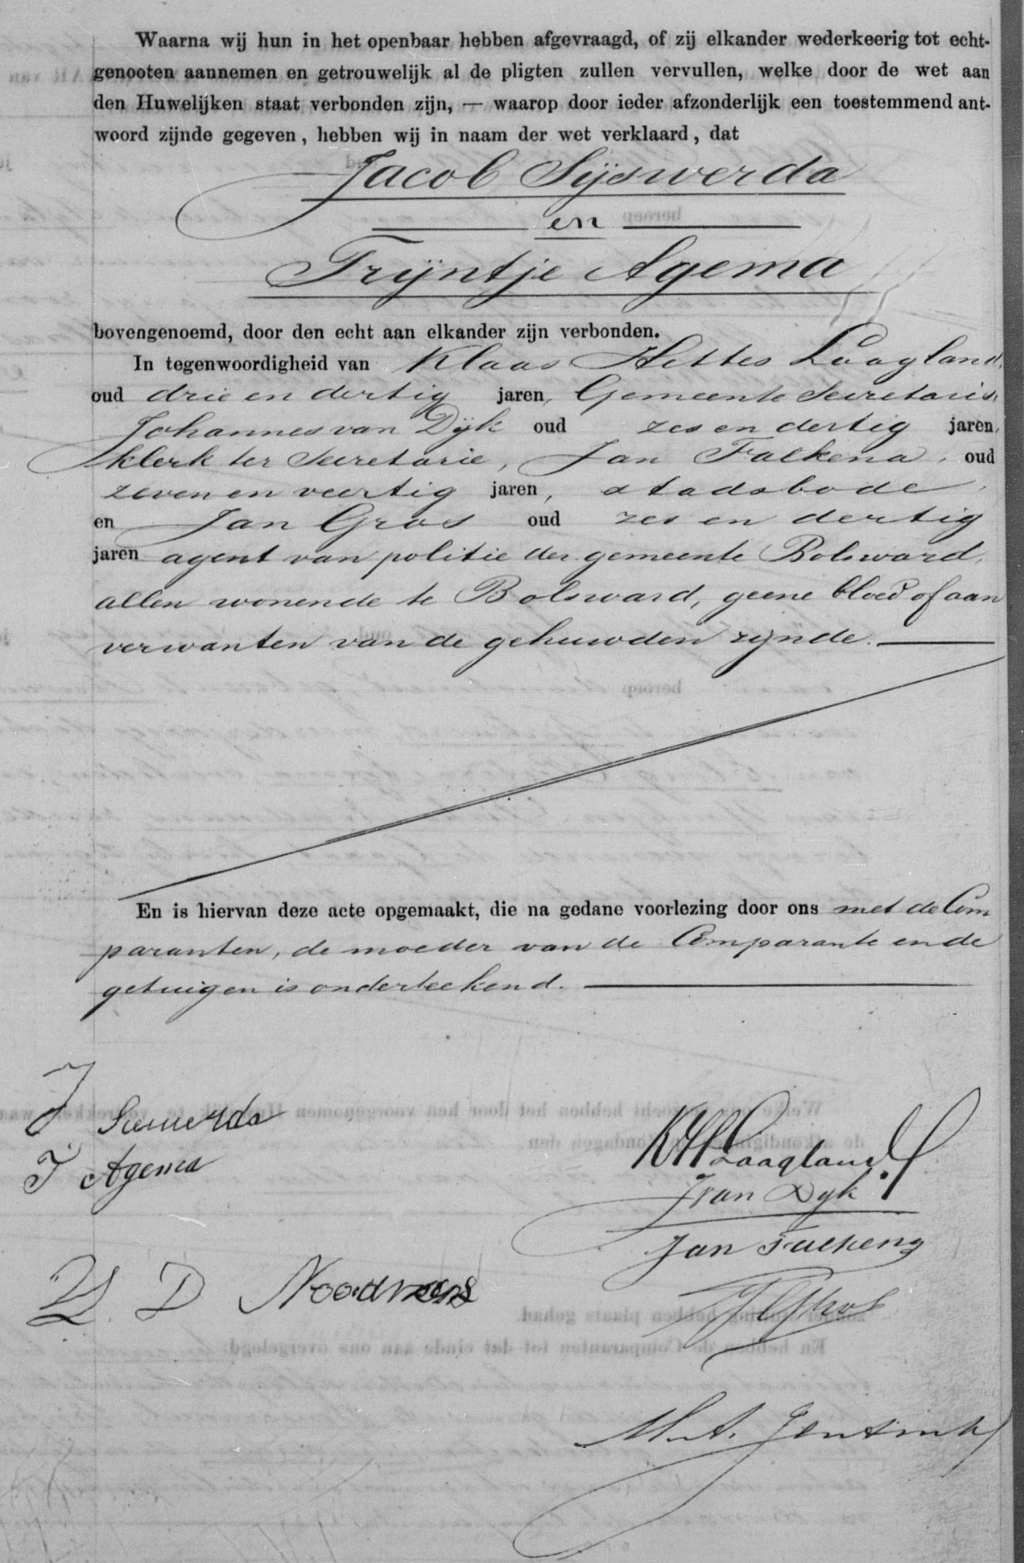 Waarna wij hun in het openbaar hebben afgevraagd, of zij elkander wederkeerig tot echt-
genooten aannemen en getrouwelijk al de pligten zullen vervullen, welke door de wet aan
den Huwelijken staat verbonden zijn, — waarop door ieder afzonderlijk een toestemmend ant-
woord zijnde gegeven, hebben wij in naam der wet verklaard, dat
Jacob Sijswerda
en
Trijntje Agema
bovengenoemd, door den echt aan elkander zijn verbonden.
In tegenwoordigheid van Klaas Hettes Laagland,
oud drie en dertig jaren, Gemeente Secretaris,
Johannes van Dijk oud zes en dertig jaren,
klerk ter Secretarie, Jan Falkena, oud
zeven en veertig jaren, stadsbode,
en Jan Gros oud zes en dertig
jaren agent van politie der gemeente Bolsward,
allen wonende te Bolsward, geene bloed of aan
verwanten van de gehuwden zijnde.
En is hiervan deze acte opgemaakt, die na gedane voorlezing door ons met de Com
paranten, de moeder van de Comparante en de
getuigen is onderteekend.
J
T Agema
KHLaagland
JvanDyk
Jan Falkena
D
JGros
M. A. Jentink